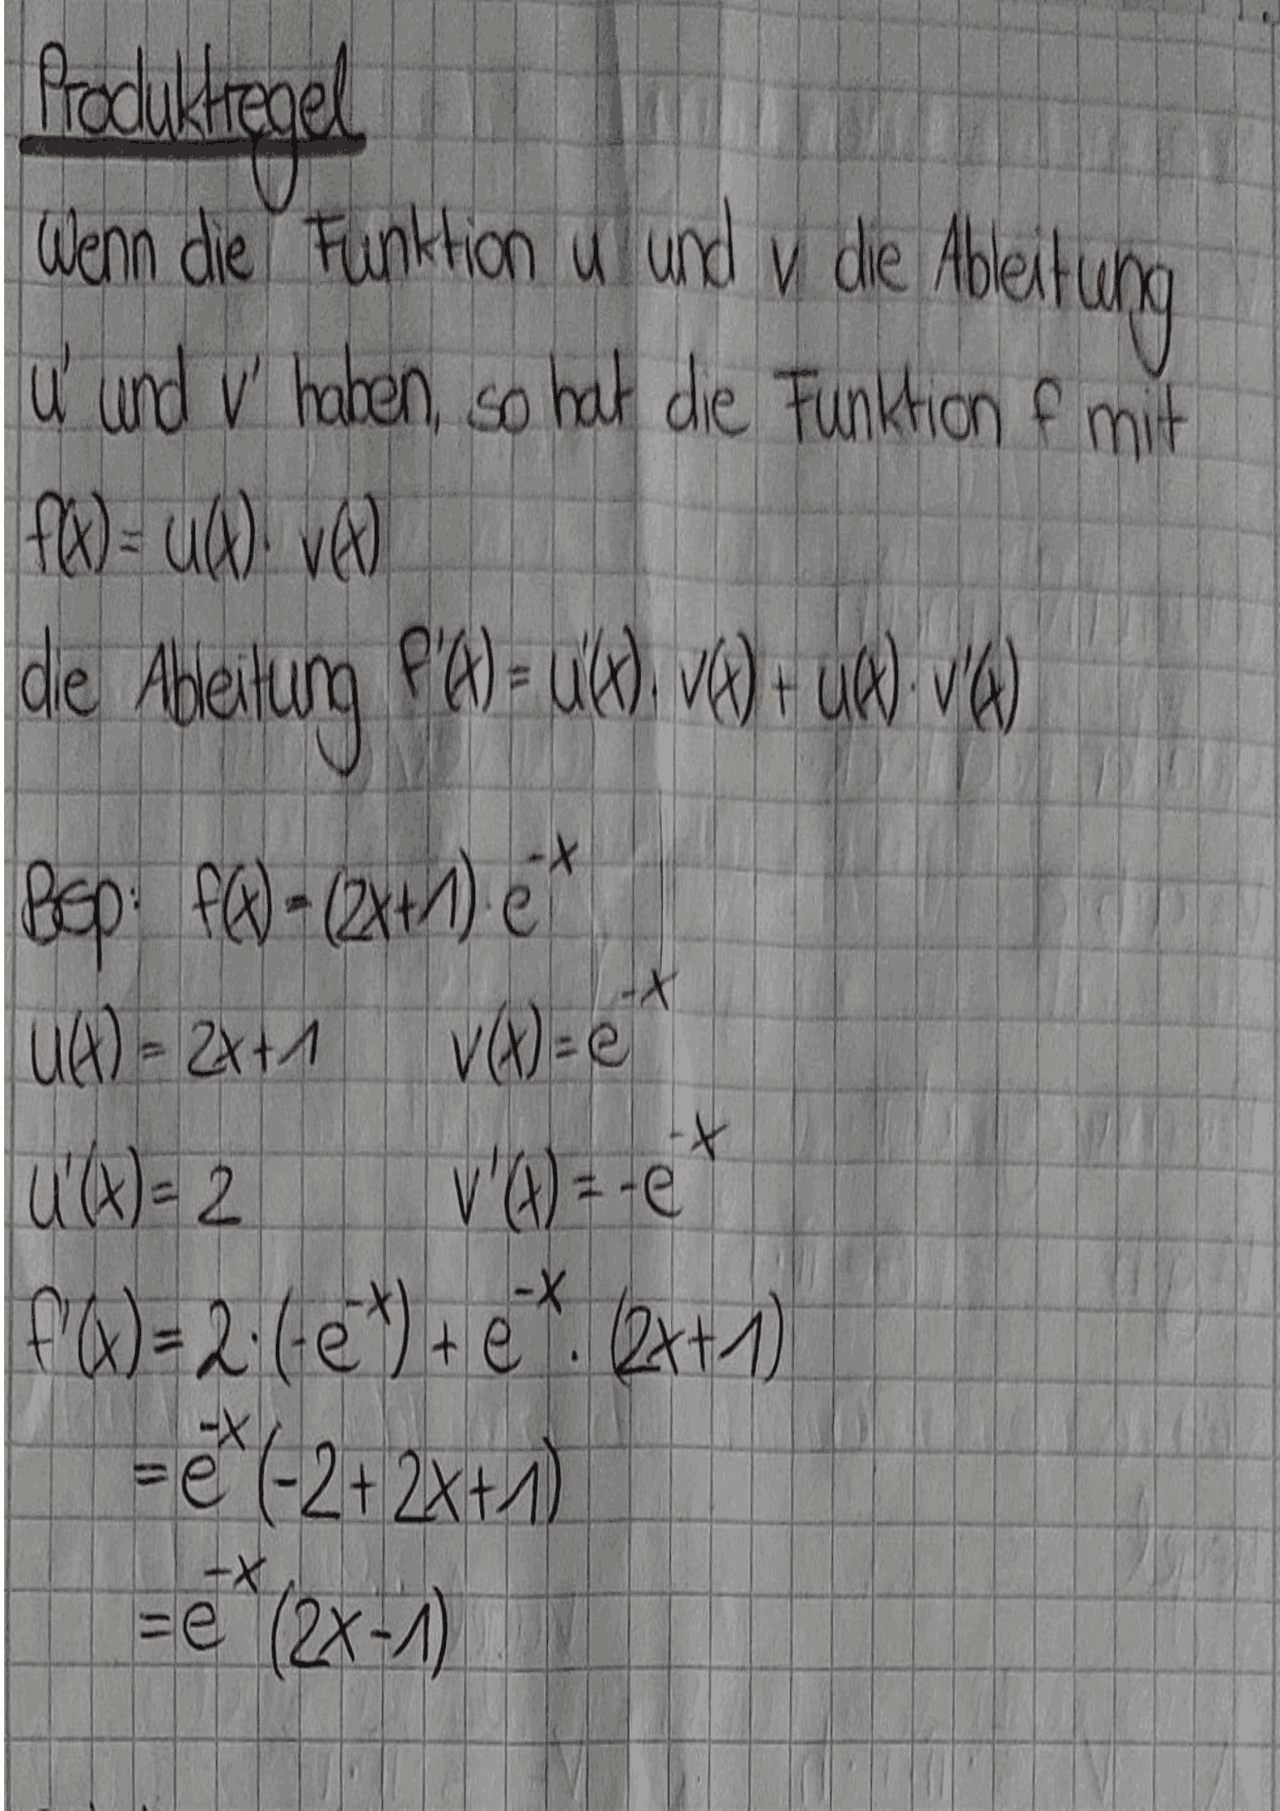 Produktregel
Wenn die Funktion u und v die Ableitung
u' und v' haben, so hat die Funktion f mit
f(x) = u(x) · v(x)
die Ableitung f'(x) = u'(x) · v(x) + u(x) · v'(x)
Bsp: f(x) = (2x+1) · e^-x
u(x) = 2x+1 v(x) = e^-x
u'(x) = 2 v'(x) = -e^-x
f'(x) = 2 · (-e^-x) + e^-x · (2x+1)
= e^-x (-2 + 2x + 1)
= e^-x (2x - 1)